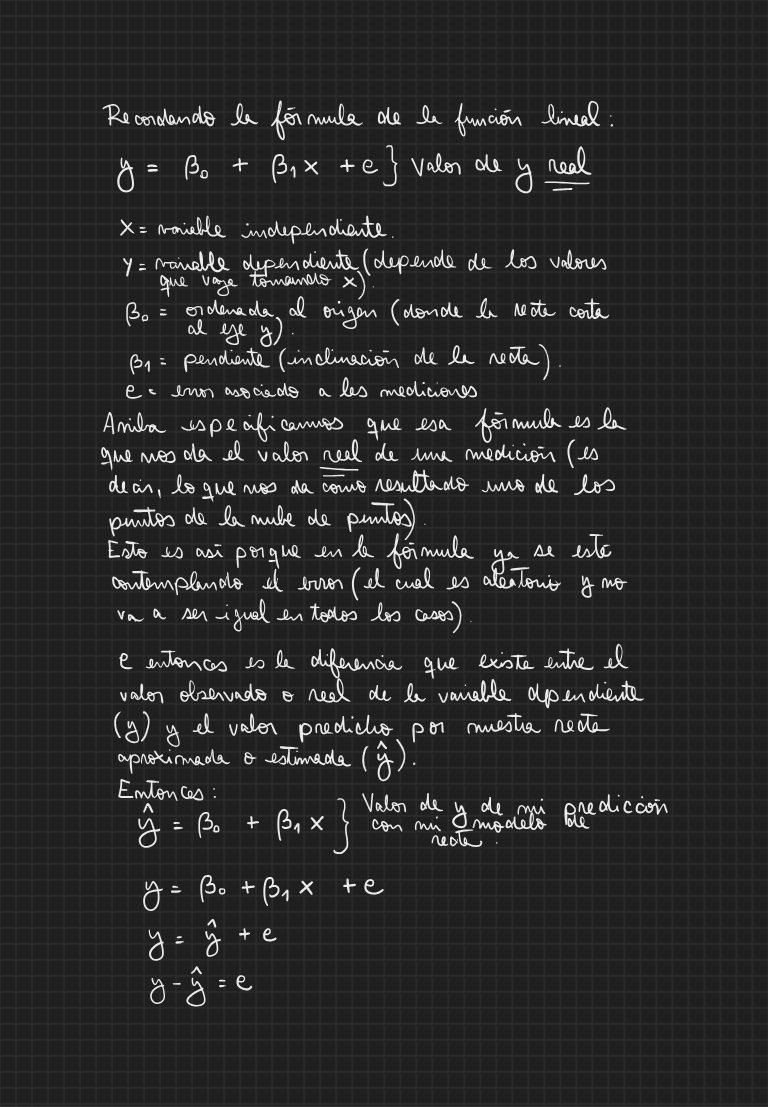 Recordando la fórmula de la función lineal:
y = β₀ + β₁x + e } Valor de y real
x = variable independiente.
y = variable dependiente (depende de los valores
que vaya tomando x)
β₀ = ordenada al origen (donde la recta corta
al eje y).
β₁ = pendiente (inclinación de la recta).
e = error asociado a las mediciones
Arriba especificamos que esa fórmula es la
que nos da el valor real de una medición (es
decir, lo que nos da como resultado uno de los
puntos de la nube de puntos).
Esto es así porque en la fórmula ya se está
contemplando el error (el cual es aleatorio y no
va a ser igual en todos los casos).
e entonces es la diferencia que existe entre el
valor observado o real de la variable dependiente
(y) y el valor predicho por nuestra recta
aproximada o estimada (ŷ).
Entonces:
ŷ = β₀ + β₁x } Valor de y de mi predicción
con mi modelo de
recta.
y = β₀ + β₁x + e
y = ŷ + e
y - ŷ = e